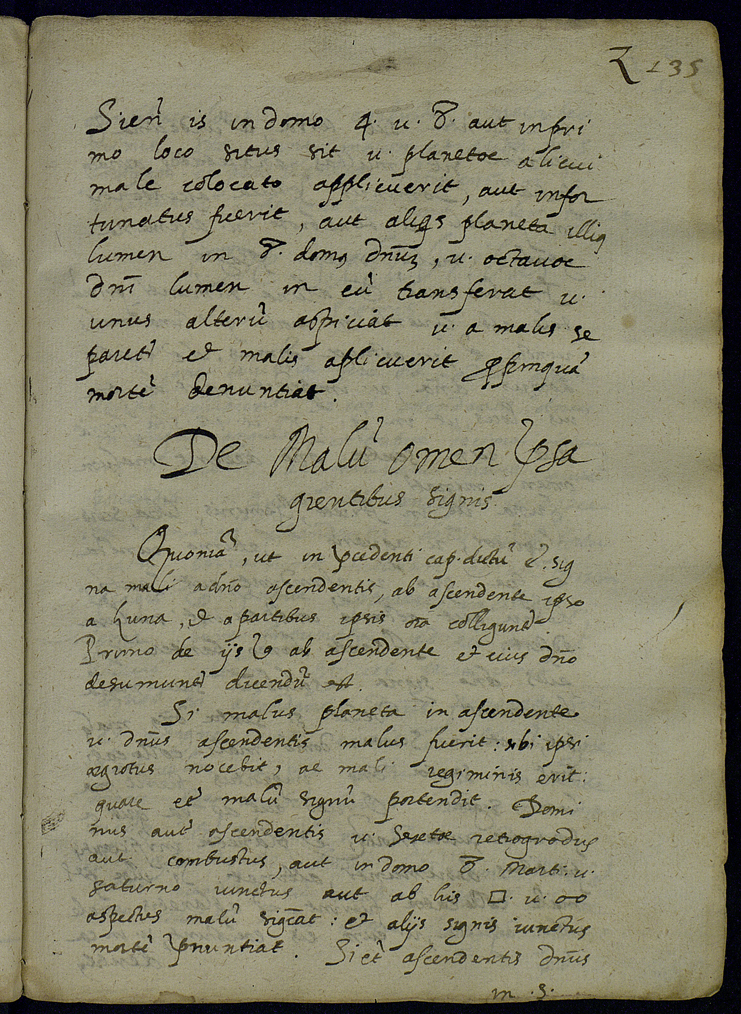 135
Si en̄ is in domo 4. u. 8. aut in pri
mo loco situs sit u. planetoe alicui
male colocato applicuerit, aut infor
tunatus fuerit, aut aliqs planeta illiq
lumen in 8. domq dn̄m, u. octavoe
dn̄i lumen in eū transferat u.
unus alterū aspiciat u. a malis se
paretr et malis aplicuerit
mortē denuntiat.
De Malū omen
grentibus signis
Quoniā, ut in pcedenti cap. dictū ē. sig
na mali a dn̄o ascendentis, ab ascendente ipso
a Luna, et a partibus ipsis oīa colligunt
Primo de ijs q ab ascendente et eius dn̄o
desumuntr dicendū est.
Si malus planeta in ascendente
u. dn̄us ascendentis malus fuerit: sibi ipsi
ægrotus nocebit, ac mali regiminis erit:
quare et malū signū portendit. Domi
nus aut ascendentis u. sextæ retrogradus
aut combustus, aut in domo 8. Marti u.
saturno iunctus aut ab his □. u. oo
aspectus malū sigcat: et alijs signis iunctus
mortē pnuntiat. Si et ascendentis dn̄us
in .8.